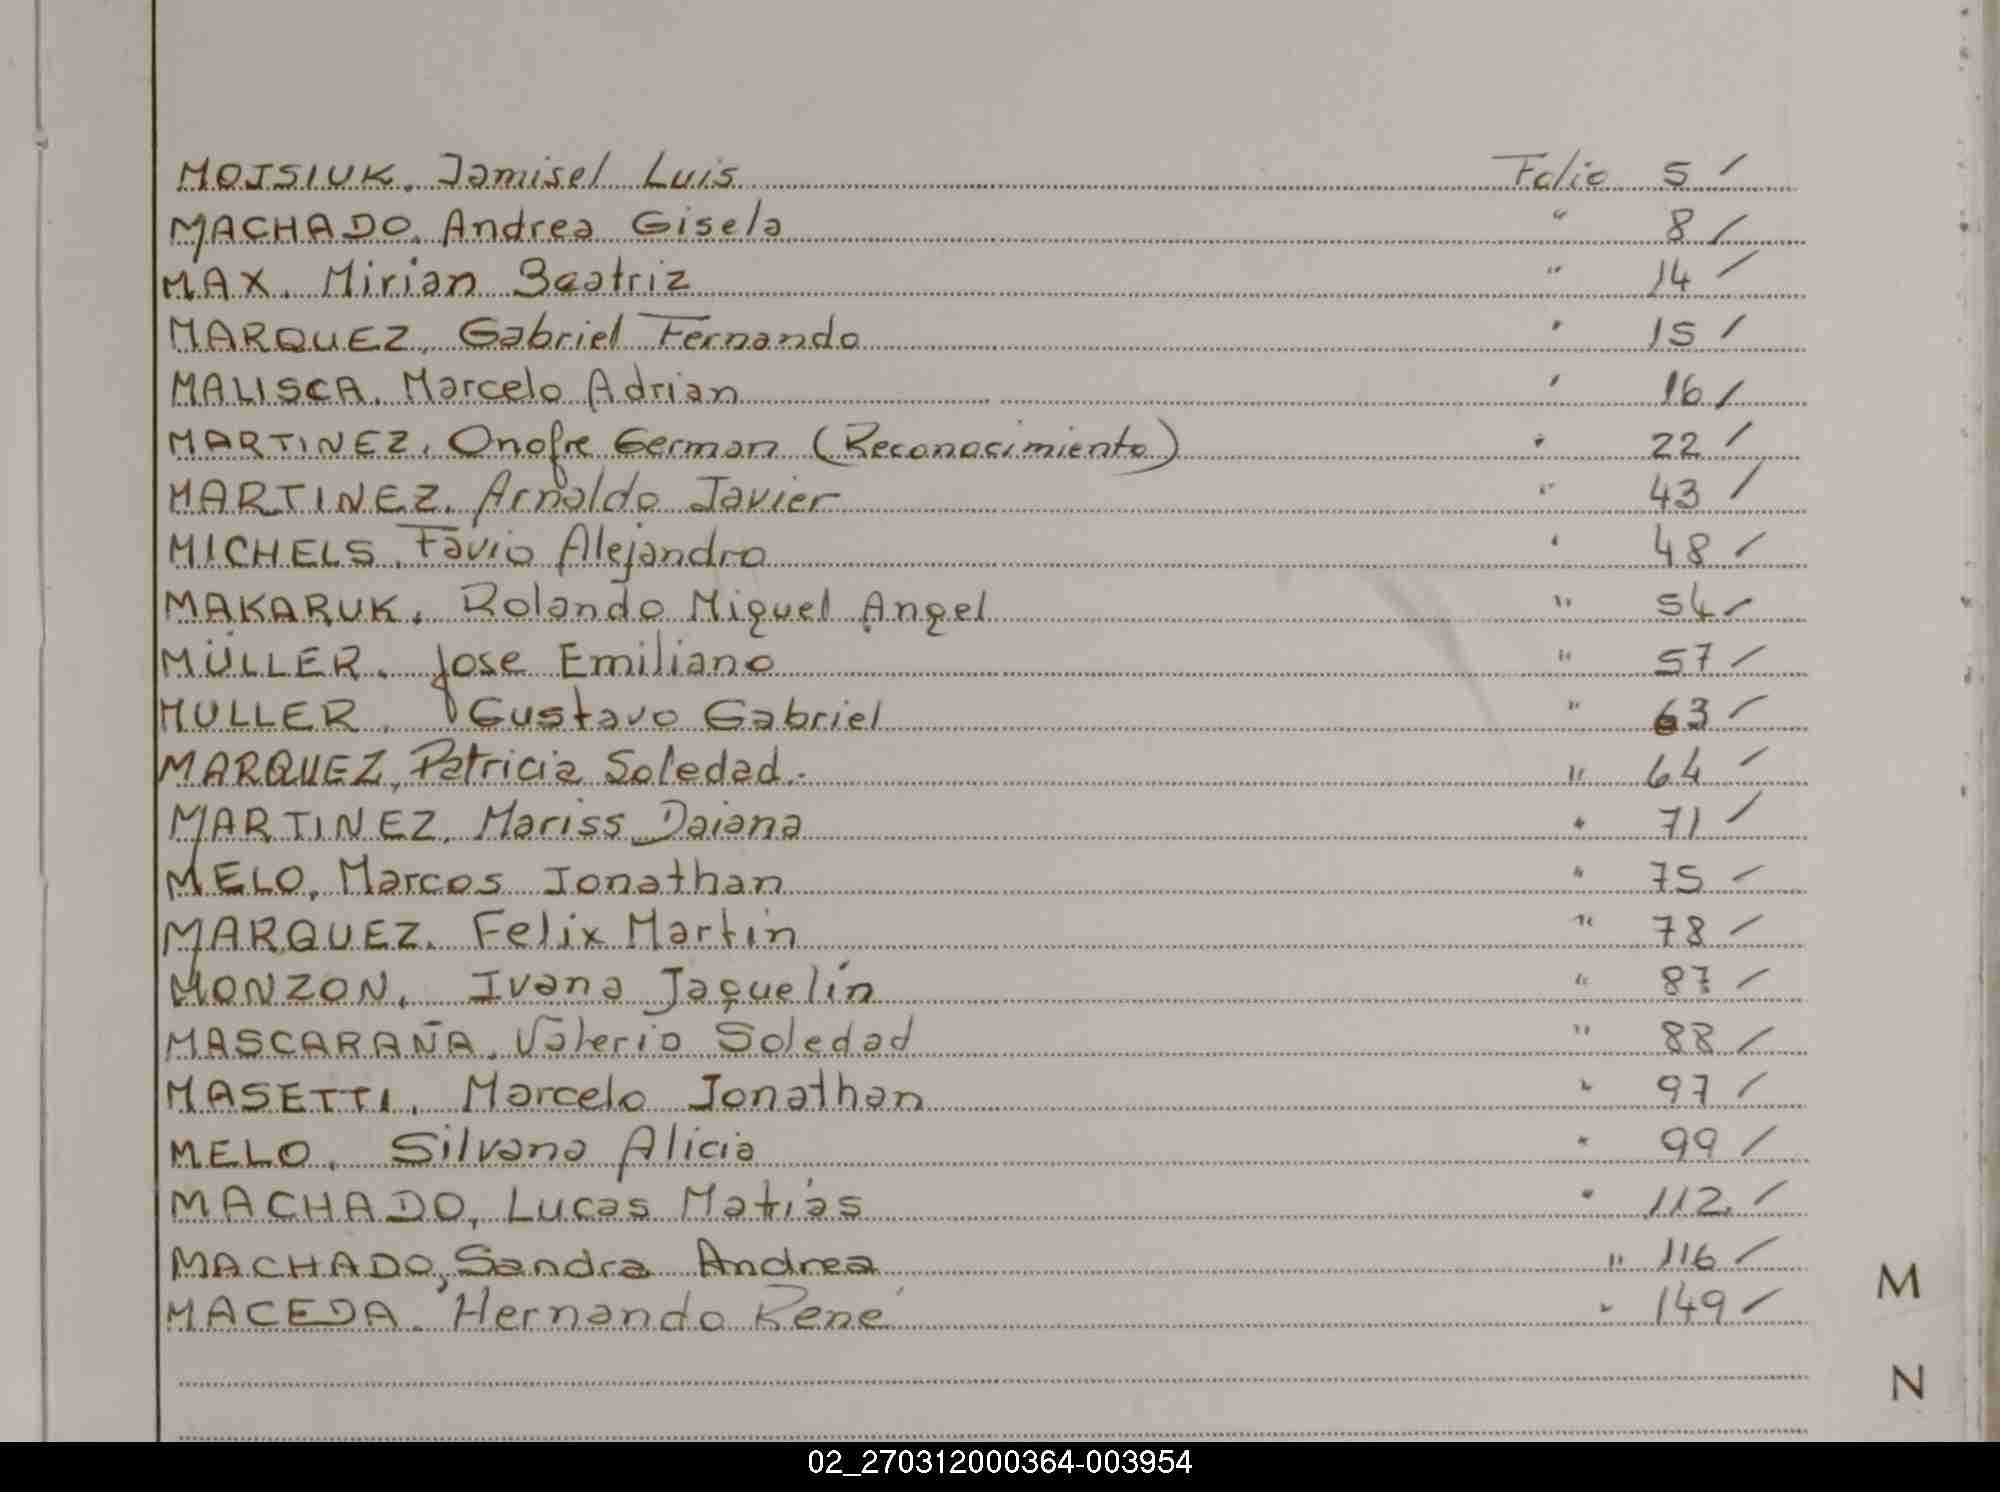 MOJSIUK. Jamisel Luis Folio 5 /
MACHADO. Andrea Gisela " 8 /
MAX. Mirian Beatriz " 14 /
MARQUEZ. Gabriel Fernando " 15 /
MALISCA. Marcelo Adrian " 16 /
MARTINEZ. Onofre German (Reconocimiento) " 22 /
MARTINEZ. Arnaldo Javier " 43 /
MICHELS. Favio Alejandro " 48 /
MAKARUK. Rolando Miguel Angel " 54 /
MÜLLER. Jose Emiliano " 57 /
MULLER. Gustavo Gabriel " 63 /
MARQUEZ, Patricia Soledad. " 64 /
MARTINEZ, Mariss Daiana " 71 /
MELO, Marcos Jonathan " 75 /
MARQUEZ. Felix Martin " 78 /
MONZON. Ivana Jaquelin " 87 /
MASCARAÑA. Valerio Soledad " 88 /
MASETTI. Marcelo Jonathan " 97 /
MELO. Silvana Alicia " 99 /
MACHADO, Lucas Matias " 112. /
MACHADO, Sandra Andrea " 116 /
MACEDA. Hernando René " 149 /
M
N
02_270312000364-003954